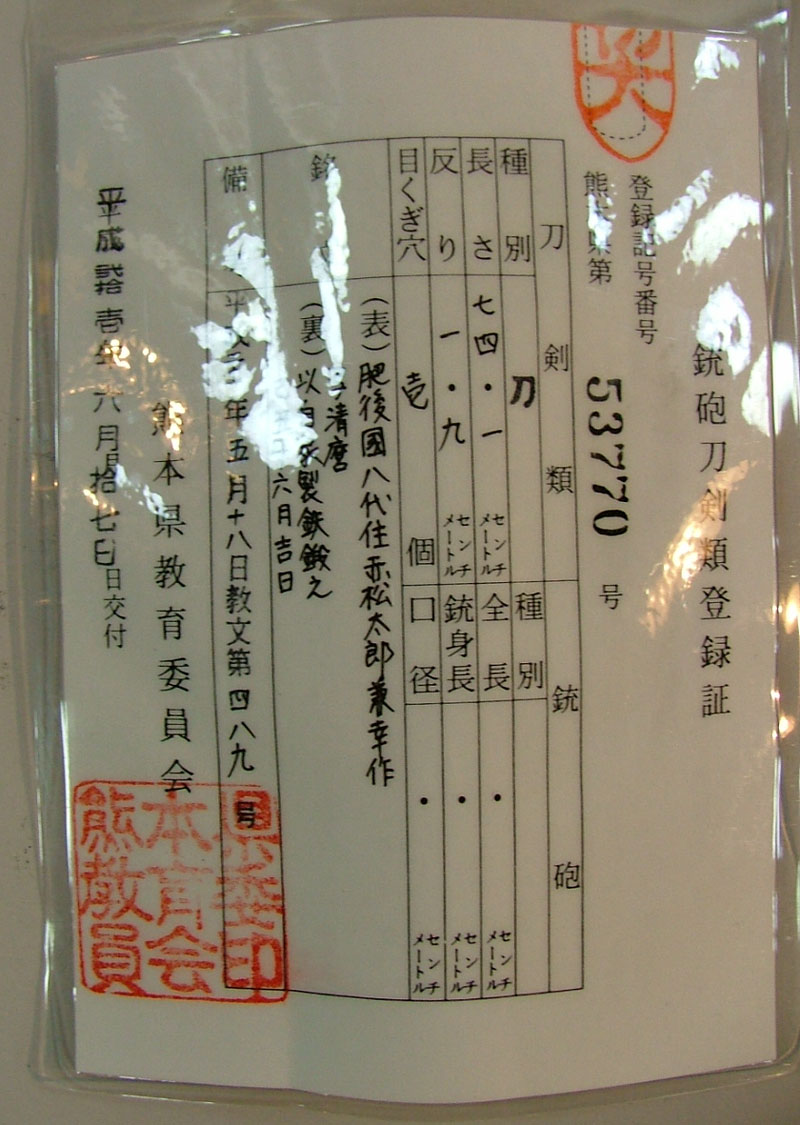 銃砲刀剣類登録証
登録記号番号
熊本県第 53770 号
刀剣類
銃砲
種別 刀
種別
長さ 七四・一 センチメートル
全長 ・ センチメートル
反り 一・九 センチメートル
銃身長 ・ センチメートル
目くぎ穴 壱 個
口径 ・ センチメートル
銘
(表)肥後國八代住赤松太郎兼幸作
清麿
(裏)以自家製鉄鍛之
六月吉日
備
年五月十八日教文第四八九号
熊本県教育委員会
平成弐拾壱年六月拾七日交付
熊本県
教育委
員会印